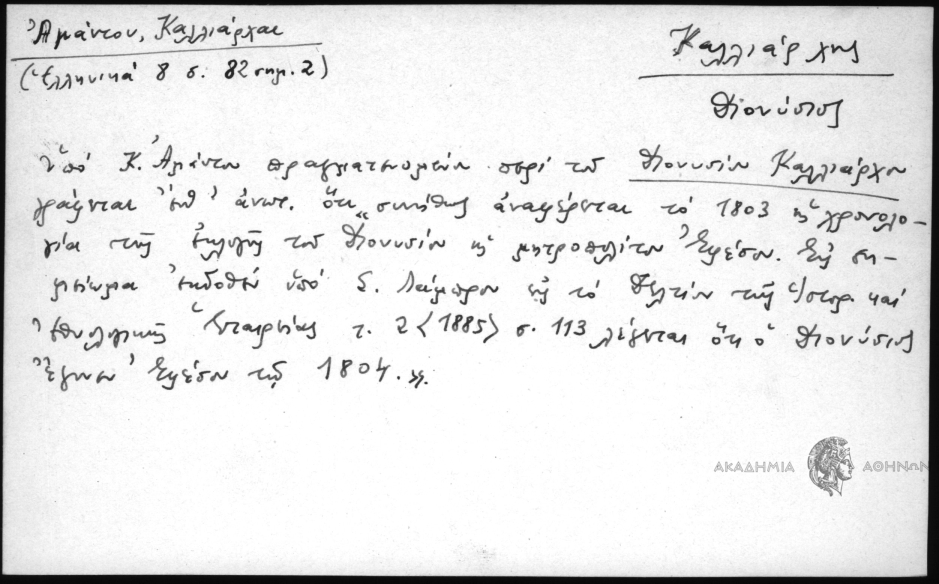 Ἀμάντου, Καλλιάρχαι
(Ἑλληνικά 8 σ. 82 σημ. 2)
Καλλιάρχης
Διονύσιος
Ὑπό Κ. Ἀμάντου πραγματευομένου περί τοῦ Διονυσίου Καλλιάρχου
γράφεται ἔνθ' ἀνωτ. ὅτι "συνήθως ἀναφέρεται τὸ 1803 ὡς χρονολο-
γία τῆς ἐκλογῆς τοῦ Διονυσίου ὡς μητροπολίτου Ἐφέσου. Εἰς ση-
μείωμα ἐκδοθέν ὑπό Σ. Λάμπρου εἰς τό Δελτίον τῆς Ἱστορ. καί
Ἐθνολογικῆς Ἑταιρείας τ. 2 <1885> σ. 113 λέγεται ὅτι ὁ Διονύσιος
ἔγινεν Ἐφέσου τῷ 1804.».
ΑΚΑΔΗΜΙΑ ΑΘΗΝΩΝ